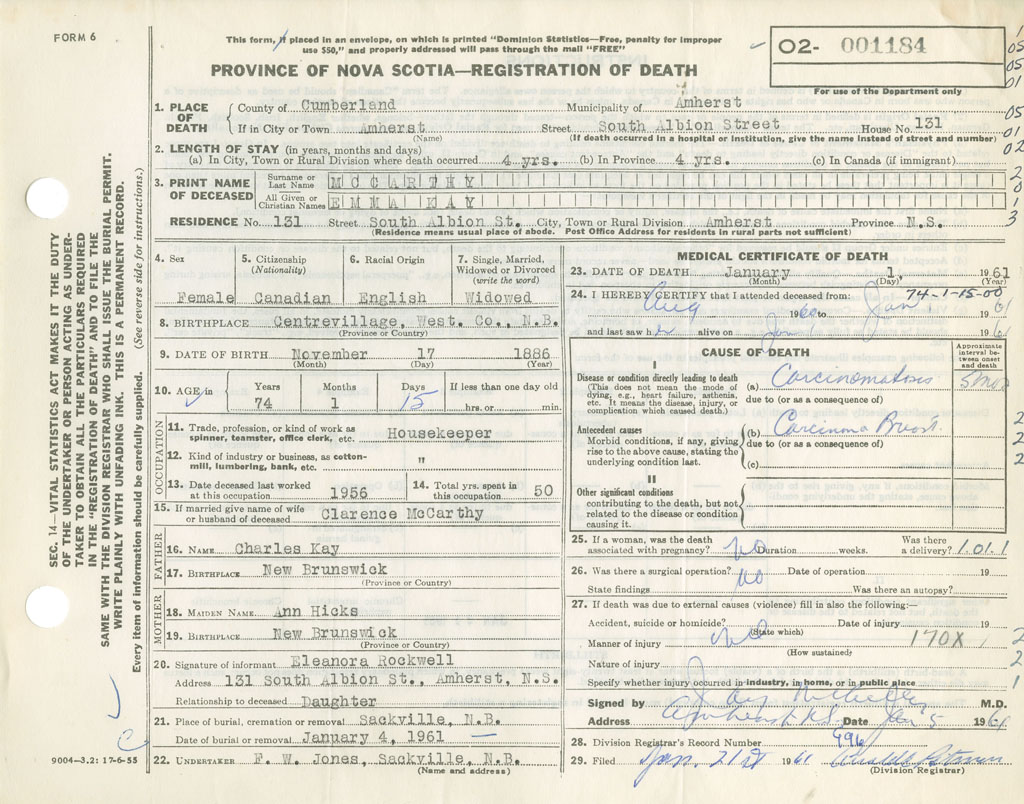 FORM 6
This form, if placed in an envelope, on which is printed "Dominion Statistics—Free, penalty for improper
use $50," and properly addressed will pass through the mail "FREE"
O2- 001184
For use of the Department only
PROVINCE OF NOVA SCOTIA—REGISTRATION OF DEATH
1. PLACE OF DEATH County of Cumberland Municipality of Amherst
If in City or Town Amherst Street South Albion Street House No. 131
(Name) (If death occurred in a hospital or institution, give the name instead of street and number)
2. LENGTH OF STAY (in years, months and days)
(a) In City, Town or Rural Division where death occurred 4 yrs. (b) In Province 4 yrs. (c) In Canada (if immigrant)
3. PRINT NAME OF DECEASED Surname or Last Name MCCARTHY
All Given or Christian Names EMMA KAY
RESIDENCE No. 131 Street South Albion St. City, Town or Rural Division Amherst Province N.S.
(Residence means usual place of abode. Post Office Address for residents in rural parts not sufficient)
4. Sex Female
5. Citizenship (Nationality) Canadian
6. Racial Origin English
7. Single, Married, Widowed or Divorced (write the word) Widowed
8. BIRTHPLACE Centrevillage, West. Co., N.B.
(Province or Country)
9. DATE OF BIRTH November 17 1886
(Month) (Day) (Year)
10. AGE in Years 74 Months 1 Days 15 If less than one day old hrs. or min.
OCCUPATION
11. Trade, profession or kind of work as spinner, teamster, office clerk, etc. Housekeeper
12. Kind of industry or business, as cotton-mill, lumbering, bank, etc. "
13. Date deceased last worked at this occupation 1956
14. Total yrs. spent in this occupation 50
15. If married give name of wife or husband of deceased Clarence McCarthy
FATHER
16. NAME Charles Kay
17. BIRTHPLACE New Brunswick
(Province or Country)
MOTHER
18. MAIDEN NAME Ann Hicks
19. BIRTHPLACE New Brunswick
(Province or Country)
20. Signature of informant Eleanora Rockwell
Address 131 South Albion St., Amherst, N.S.
Relationship to deceased Daughter
21. Place of burial, cremation or removal Sackville, N.B.
Date of burial or removal January 4, 1961
22. UNDERTAKER F. W. Jones, Sackville, N.B.
(Name and address)
MEDICAL CERTIFICATE OF DEATH
23. DATE OF DEATH January 1, 1961
(Month) (Day) (Year)
74-1-15-00
24. I HEREBY CERTIFY that I attended deceased from:
Aug 1960 to Jan 1 61
and last saw her alive on Jan 1 1961
CAUSE OF DEATH
Approximate interval between onset and death
I
Disease or condition directly leading to death
(This does not mean the mode of dying, e.g., heart failure, asthenia, etc. It means the disease, injury, or complication which caused death.)
(a) Carcinomatosis 5 mos
due to (or as a consequence of)
Antecedent causes
Morbid conditions, if any, giving rise to the above cause, stating the underlying condition last.
(b) Carcinoma Breast
due to (or as a consequence of)
(c)
II
Other significant conditions
contributing to the death, but not related to the disease or condition causing it.
25. If a woman, was the death associated with pregnancy? No Duration weeks. Was there a delivery? 1.01.1
26. Was there a surgical operation? No Date of operation 19
State findings Was there an autopsy?
27. If death was due to external causes (violence) fill in also the following:—
Accident, suicide or homicide? No Date of injury 19
(State which)
Manner of injury 170X
(How sustained)
Nature of injury
Specify whether injury occurred in industry, in home, or in public place
Signed by M.D.
Address Amherst N.S. Date Jan 5 1961
28. Division Registrar's Record Number 996
29. Filed Jan. 21st 1961
(Division Registrar)
SEC. 14—VITAL STATISTICS ACT MAKES IT THE DUTY
OF THE UNDERTAKER OR PERSON ACTING AS UNDER-
TAKER TO OBTAIN ALL THE PARTICULARS REQUIRED
IN THE "REGISTRATION OF DEATH" AND TO FILE THE
SAME WITH THE DIVISION REGISTRAR WHO SHALL ISSUE THE BURIAL PERMIT.
WRITE PLAINLY WITH UNFADING INK. THIS IS A PERMANENT RECORD.
Every item of information should be carefully supplied. (See reverse side for instructions.)
9004—3.2: 17-6-55